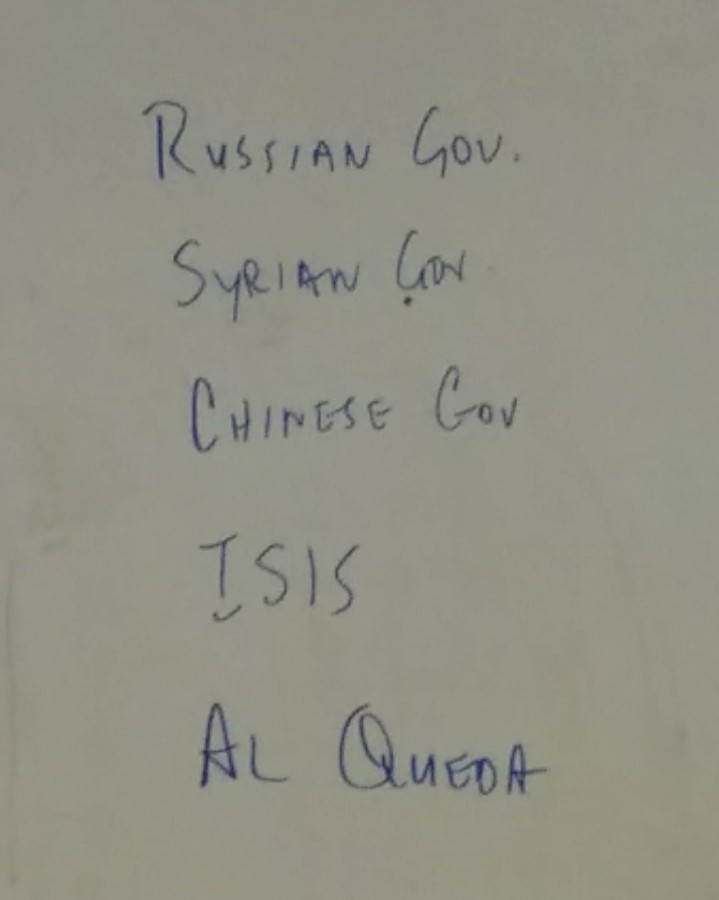 RUSSIAN GOV.
SYRIAN GOV
CHINESE GOV
ISIS
AL QUEDA